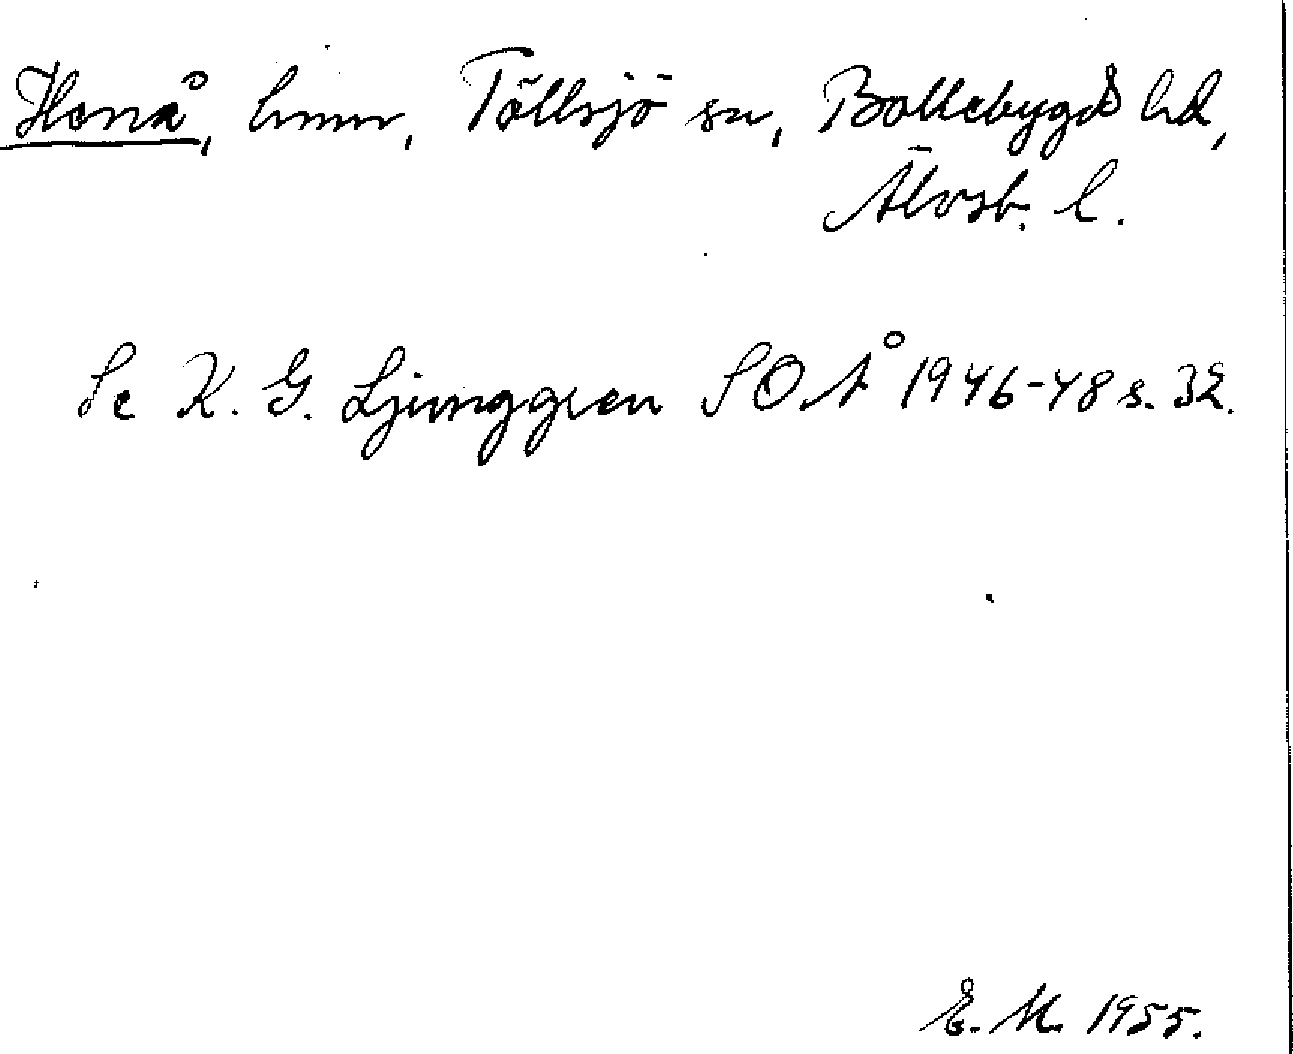 Honå, hmn, Töllsjö sn, Bollebygds hd,
Älvsb. l.
Se K. G. Ljunggren SOÅ 1946-48 s. 32.
E. M. 1955.